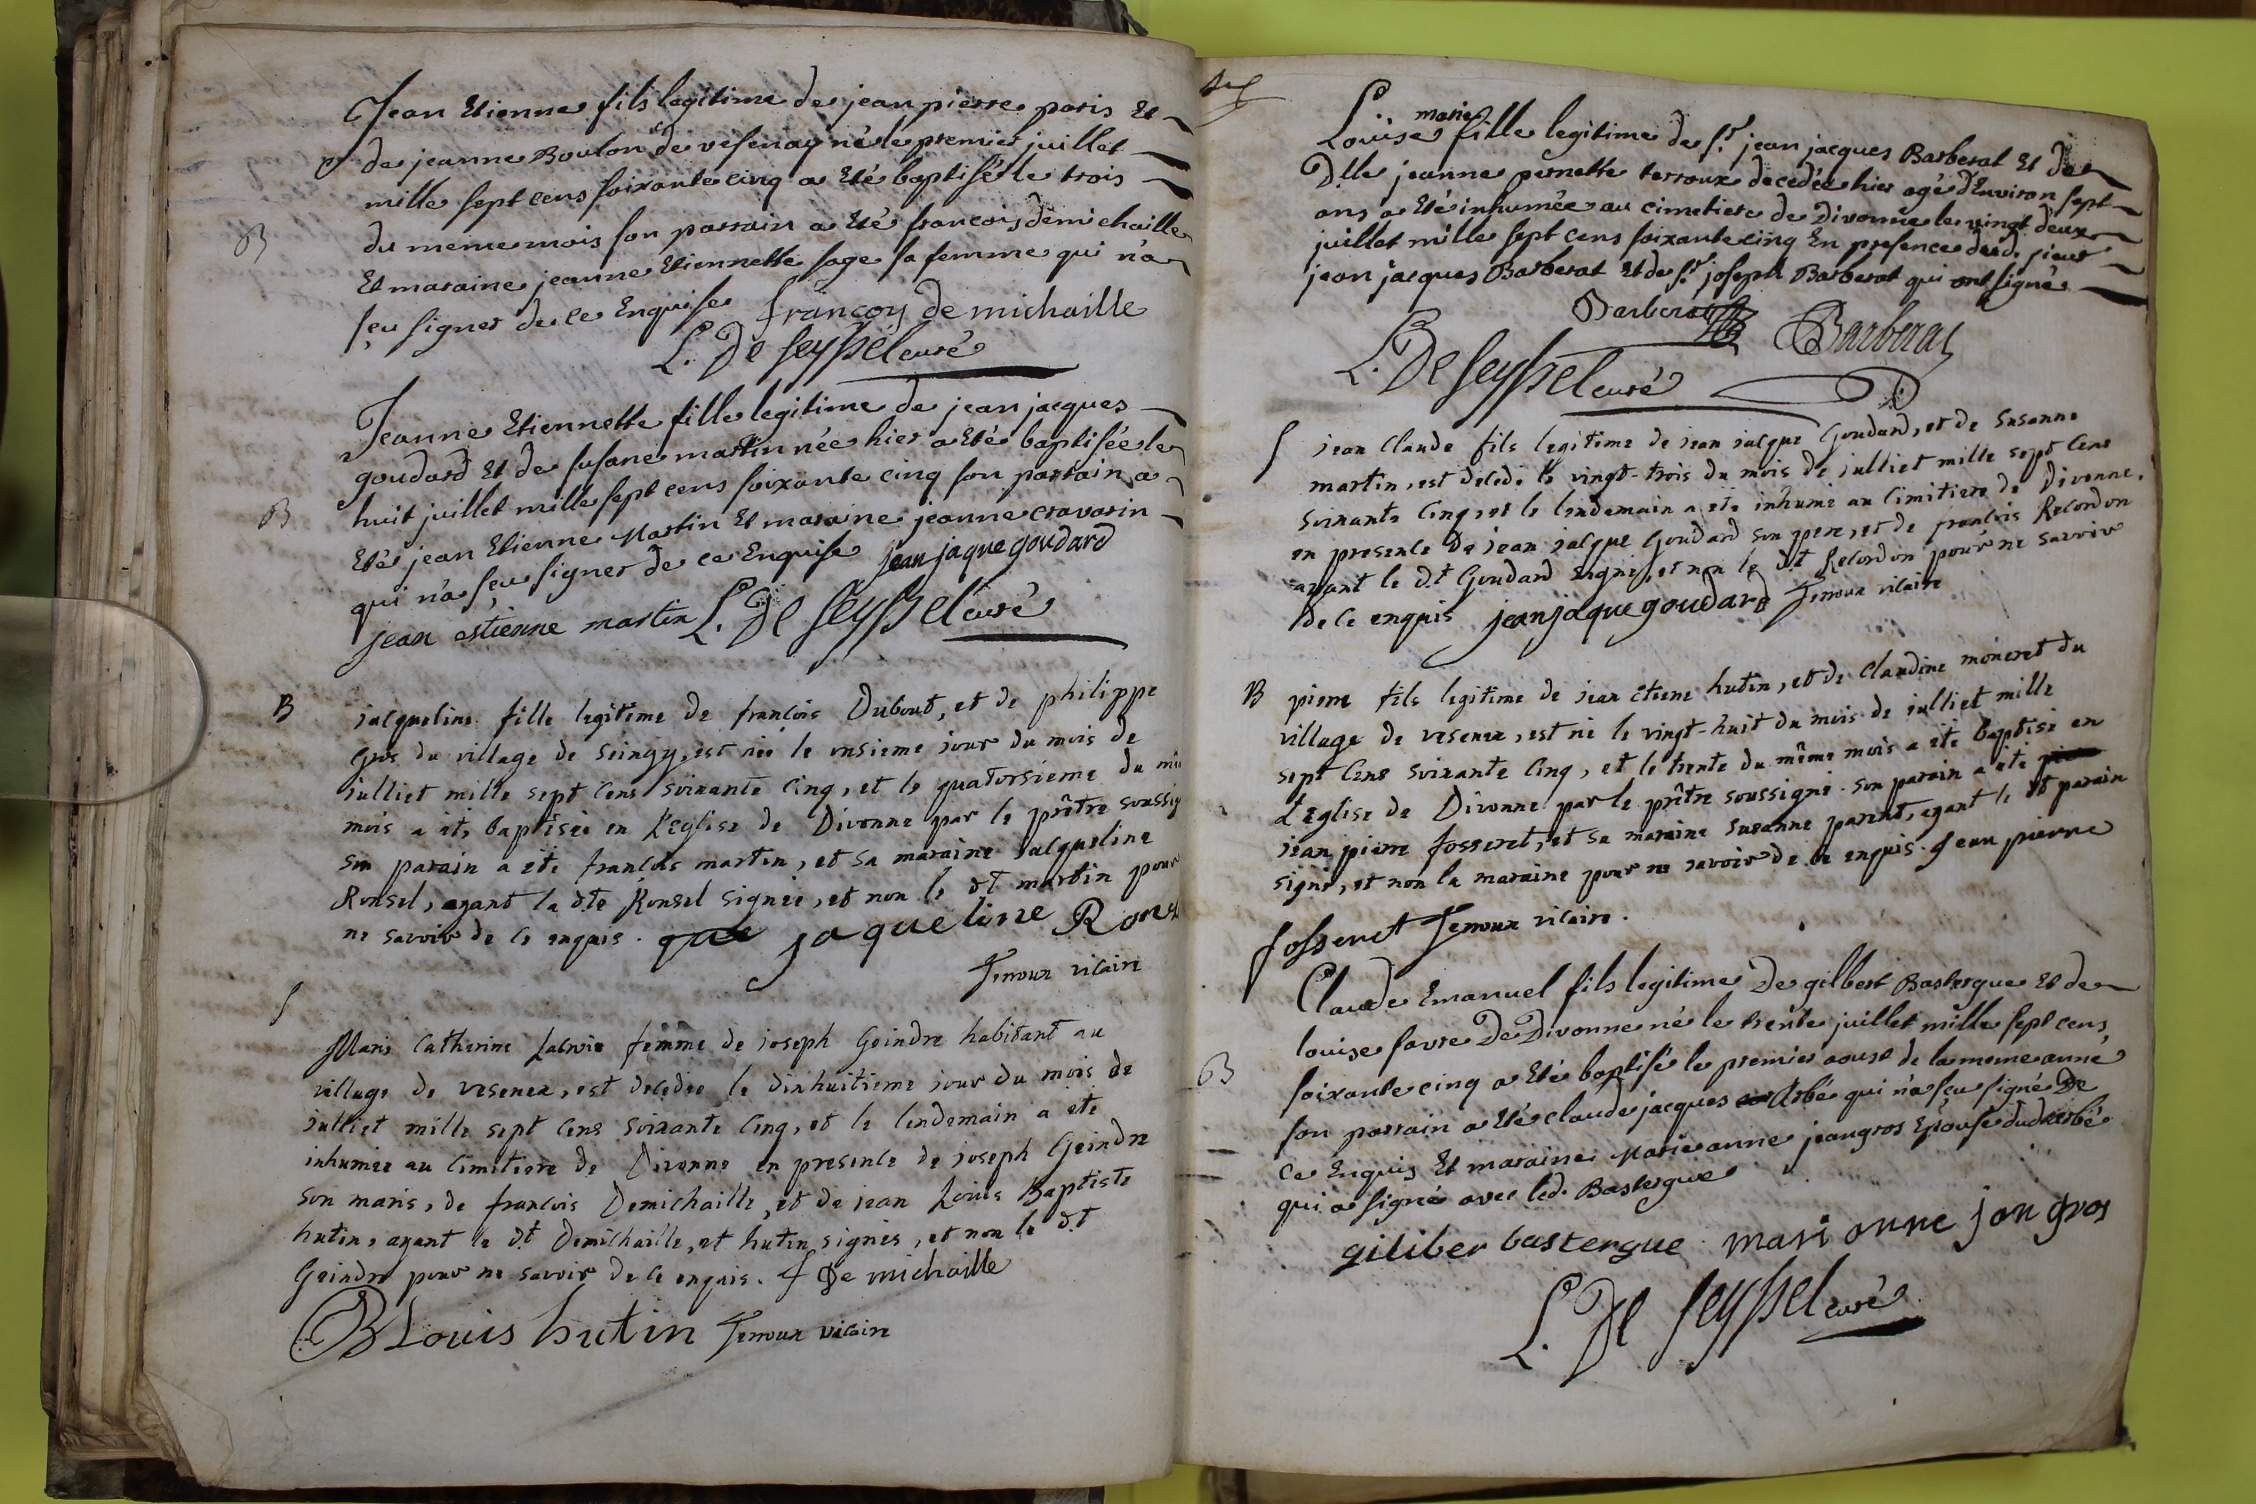 Jean Etienne fils legitime de jean pierre paris Et
de jeanne Boulon de vesenay né le premier juillet
mille sept cens soixante cinq a Eté baptisé le trois
B
du meme mois son parrain a Eté francois demichaille
Et maraine jeanne Etiennette sage sa femme qui n'a
sçu signer de ce Enquise françoy de michaille
L. De Seyssel curé
Jeanne Etiennette fille legitime de jean jacques
goudard Et de susane martin née hier a Eté baptisée le
B
huit juillet mille sept cens soixante cinq son parrain a
Eté jean Etienne Martin Et maraine jeanne cravarin
qui n'a sçu signer de ce Enquise jean jaque goudard
jean estienne martin L. De Seyssel curé
B
jacqueline fille legitime de francois Dubout, et de philippe
gros du village de Seingy, est née le onsieme jour du mois de
julliet mille sept cens soixante cinq, et le quatorsieme du mê
mois a ete baptisée en l'Eglise de Divonne par le prêtre soussig
son parain a ete francois martin, et sa maraine jacqueline
Ronsel, ayant la dte Ronsel signée, et non le dt martin pour
ne savoir de ce enquis. jaqueline Rons
Jenoux vicaire
S
Marie Catherine Lacroix femme de joseph Geindre habitant au
village de vesenex, est decedée le dixhuitieme jour du mois de
julliet mille sept cens soixante cinq, et le lendemain a ete
inhumée au cimitiere de Divonne en presence de joseph Geindre
son maris, de francois Demichaille, et de jean Louis Baptiste
hutin, ayant le dt Demichaille, et hutin signés, et non le dt
Geindre pour ne savoir de ce enquis. f De michaille
B Louis hutin Jenoux vicaire
marie
Louise fille legitime de Sr. jean jacques Barberat Et de
Dlle jeanne pernette terroux decedée hier agé d'Environ sept
ans a Eté inhumée au cimetiere de Divonne le vingt deux
juillet mille sept cens soixante cinq En presence dud. sieur
jean jacques Barberat Et de Sr. joseph Barberat qui ont signé
Barberat Barberat
L. De Seyssel curé
S
jean Claude fils legitime de jean jacque Goudard, et de Susanne
martin, est decedé le vingt-trois du mois de julliet mille sept cens
soixante cinq, et le lendemain a ete inhumé au cimitiere de Divonne,
en presence de jean jacque Goudard son pere, et de francois Recordon
ayant le dt Goudard signé, et non le dt Recordon pour ne savoir
de ce enquis jean jaque goudard Jenoux vicaire
B
pierre fils legitime de jean etiene hutin, et de Claudine moneret du
village de vesenex, est né le vingt-huit du mois de julliet mille
sept cens soixante cinq, et le trente du même mois a ete baptisé en
l'Eglise de Divonne par le prêtre soussigné. son parain a ete
jean pierre fosseret, et sa maraine susanne parent, ayant le dt parain
signé, et non la maraine pour ne savoir de ce enquis. jean pierre
fosseret Jenoux vicaire.
Claude Emanuel fils legitime De gilbert Bastergue Et de
louise favre De Divonne né le trente juillet mille sept cens
B
soixante cinq a Eté baptisé le premier aoust de la meme année
son parrain a Eté claude jacques Arbé qui n'a sçu signé De
ce Enquis Et maraine Marie anne jeangros Epouse dud arbé
qui a signé avec led. Bastergue
giliber bastergue mari anne jan gros
L. De Seyssel curé